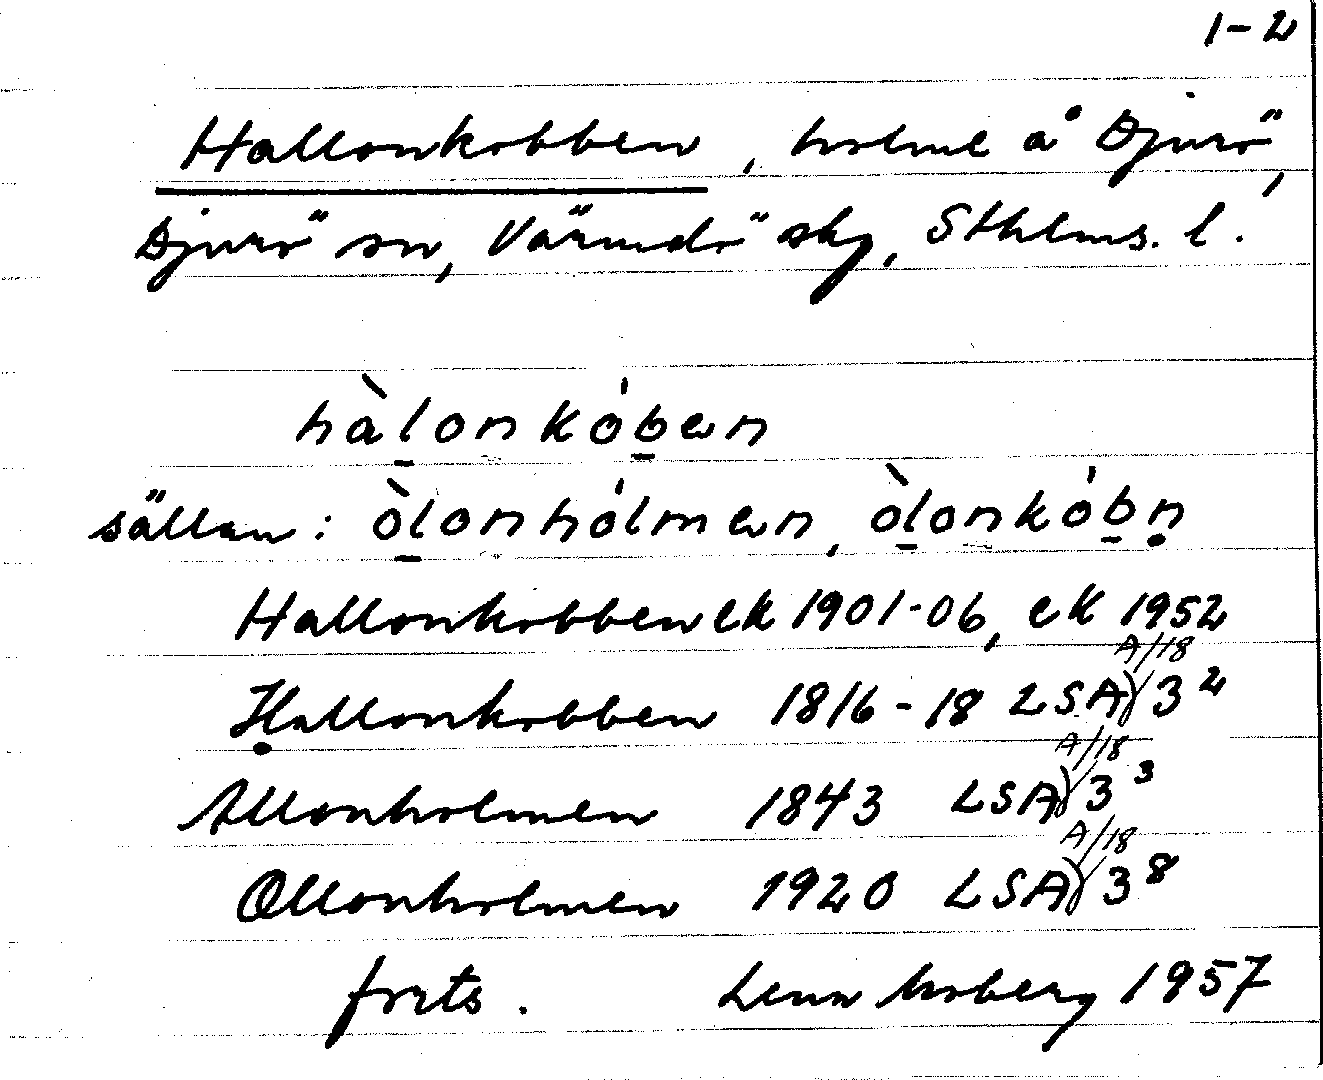 1-2
Hallonkobben, holme å Djurö,
Djurö sn, Värmdö skg, Sthlms. l.
hàl̲onkób̲en
sällan: òl̲onhólmen, òl̲onkób̲ṇ
Hallonkobben ek 1901-06, ek 1952
Ḥallonkobben 1816-18 LSA A/18 3²
Allonholmen 1843 LSA A/18 3³
Ollonholmen 1920 LSA A/18 3⁸
forts. Lenn Moberg 1957